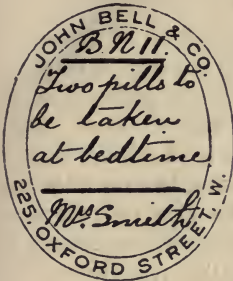 JOHN BELL & CO.
B N 11.
Two pills to
be taken
at bedtime
Mrs Smith
225, OXFORD STREET, W.